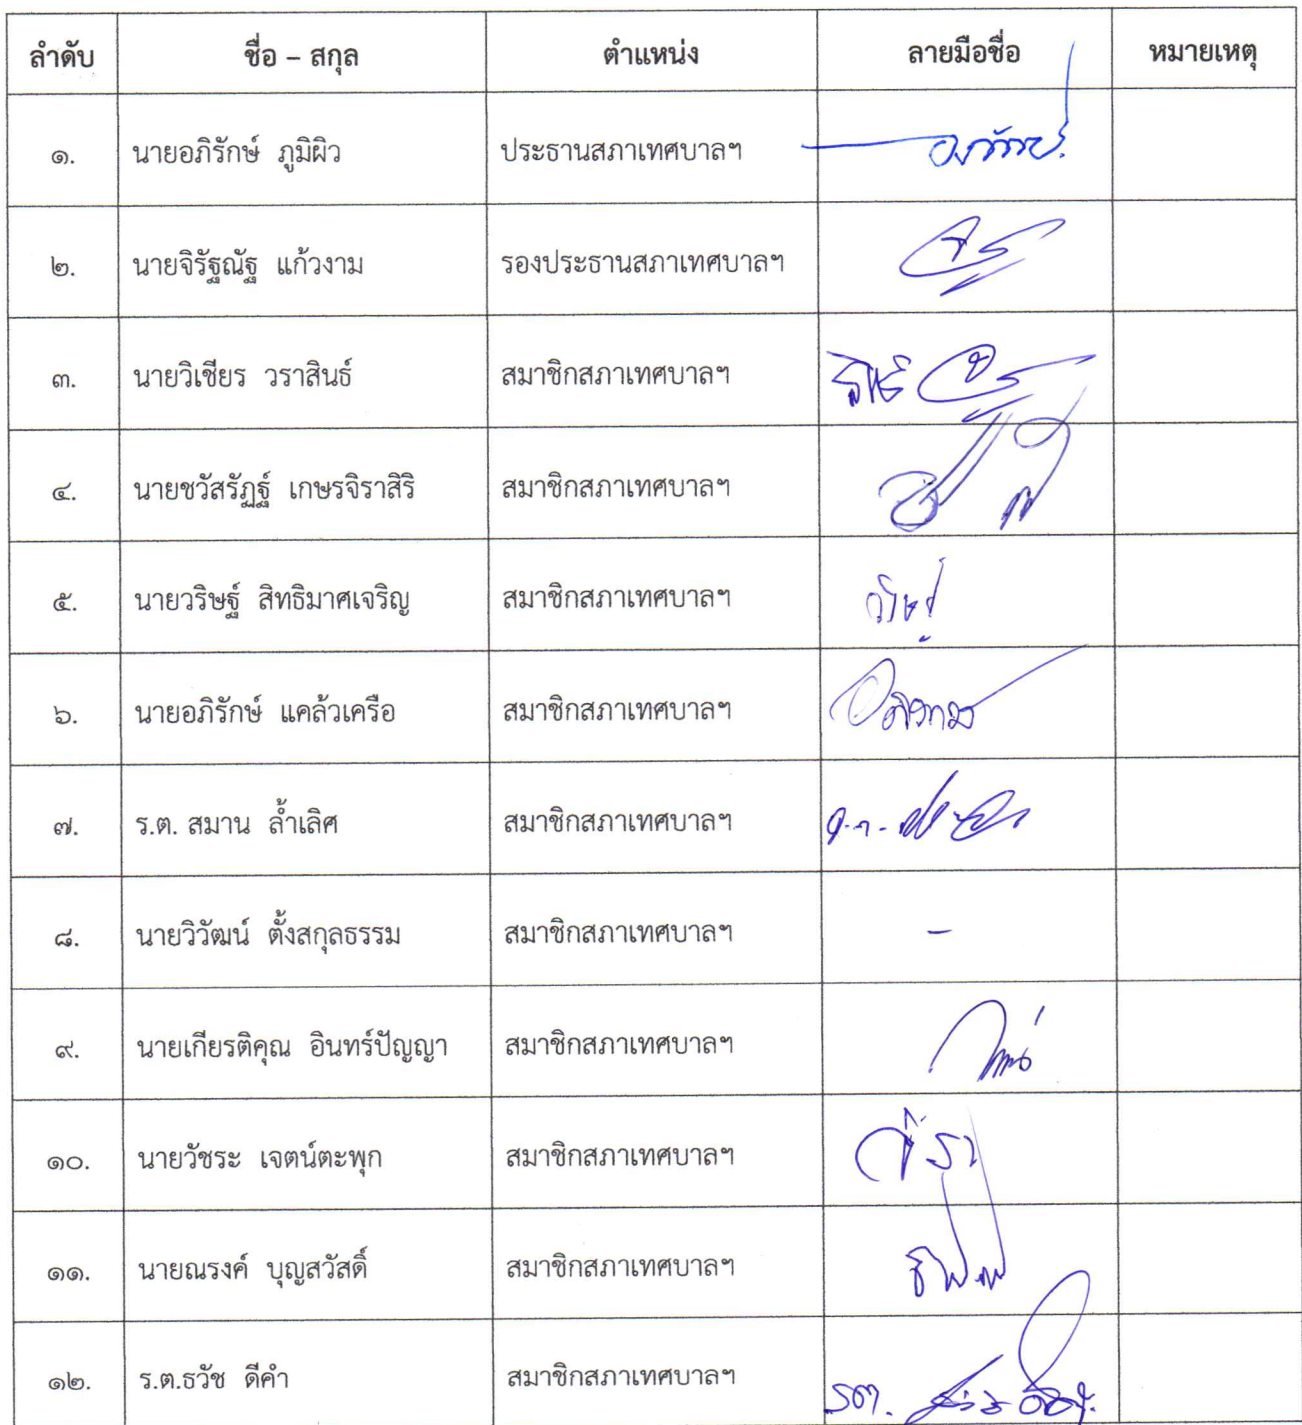 ลำดับ ชื่อ – สกุล ตำแหน่ง ลายมือชื่อ หมายเหตุ
๑. นายอภิรักษ์ ภูมิผิว ประธานสภาเทศบาลฯ
๒. นายจิรัฐณัฐ แก้วงาม รองประธานสภาเทศบาลฯ
๓. นายวิเชียร วราสินธ์ สมาชิกสภาเทศบาลฯ
๔. นายชวัสรัฏฐ์ เกษรจิราสิริ สมาชิกสภาเทศบาลฯ
๕. นายวริษฐ์ สิทธิมาศเจริญ สมาชิกสภาเทศบาลฯ
๖. นายอภิรักษ์ แคล้วเครือ สมาชิกสภาเทศบาลฯ
๗. ร.ต. สมาน ล้ำเลิศ สมาชิกสภาเทศบาลฯ
๘. นายวิวัฒน์ ตั้งสกุลธรรม สมาชิกสภาเทศบาลฯ –
๙. นายเกียรติคุณ อินทร์ปัญญา สมาชิกสภาเทศบาลฯ
๑๐. นายวัชระ เจตน์ตะพุก สมาชิกสภาเทศบาลฯ
๑๑. นายณรงค์ บุญสวัสดิ์ สมาชิกสภาเทศบาลฯ
๑๒. ร.ต.ธวัช ดีคำ สมาชิกสภาเทศบาลฯ